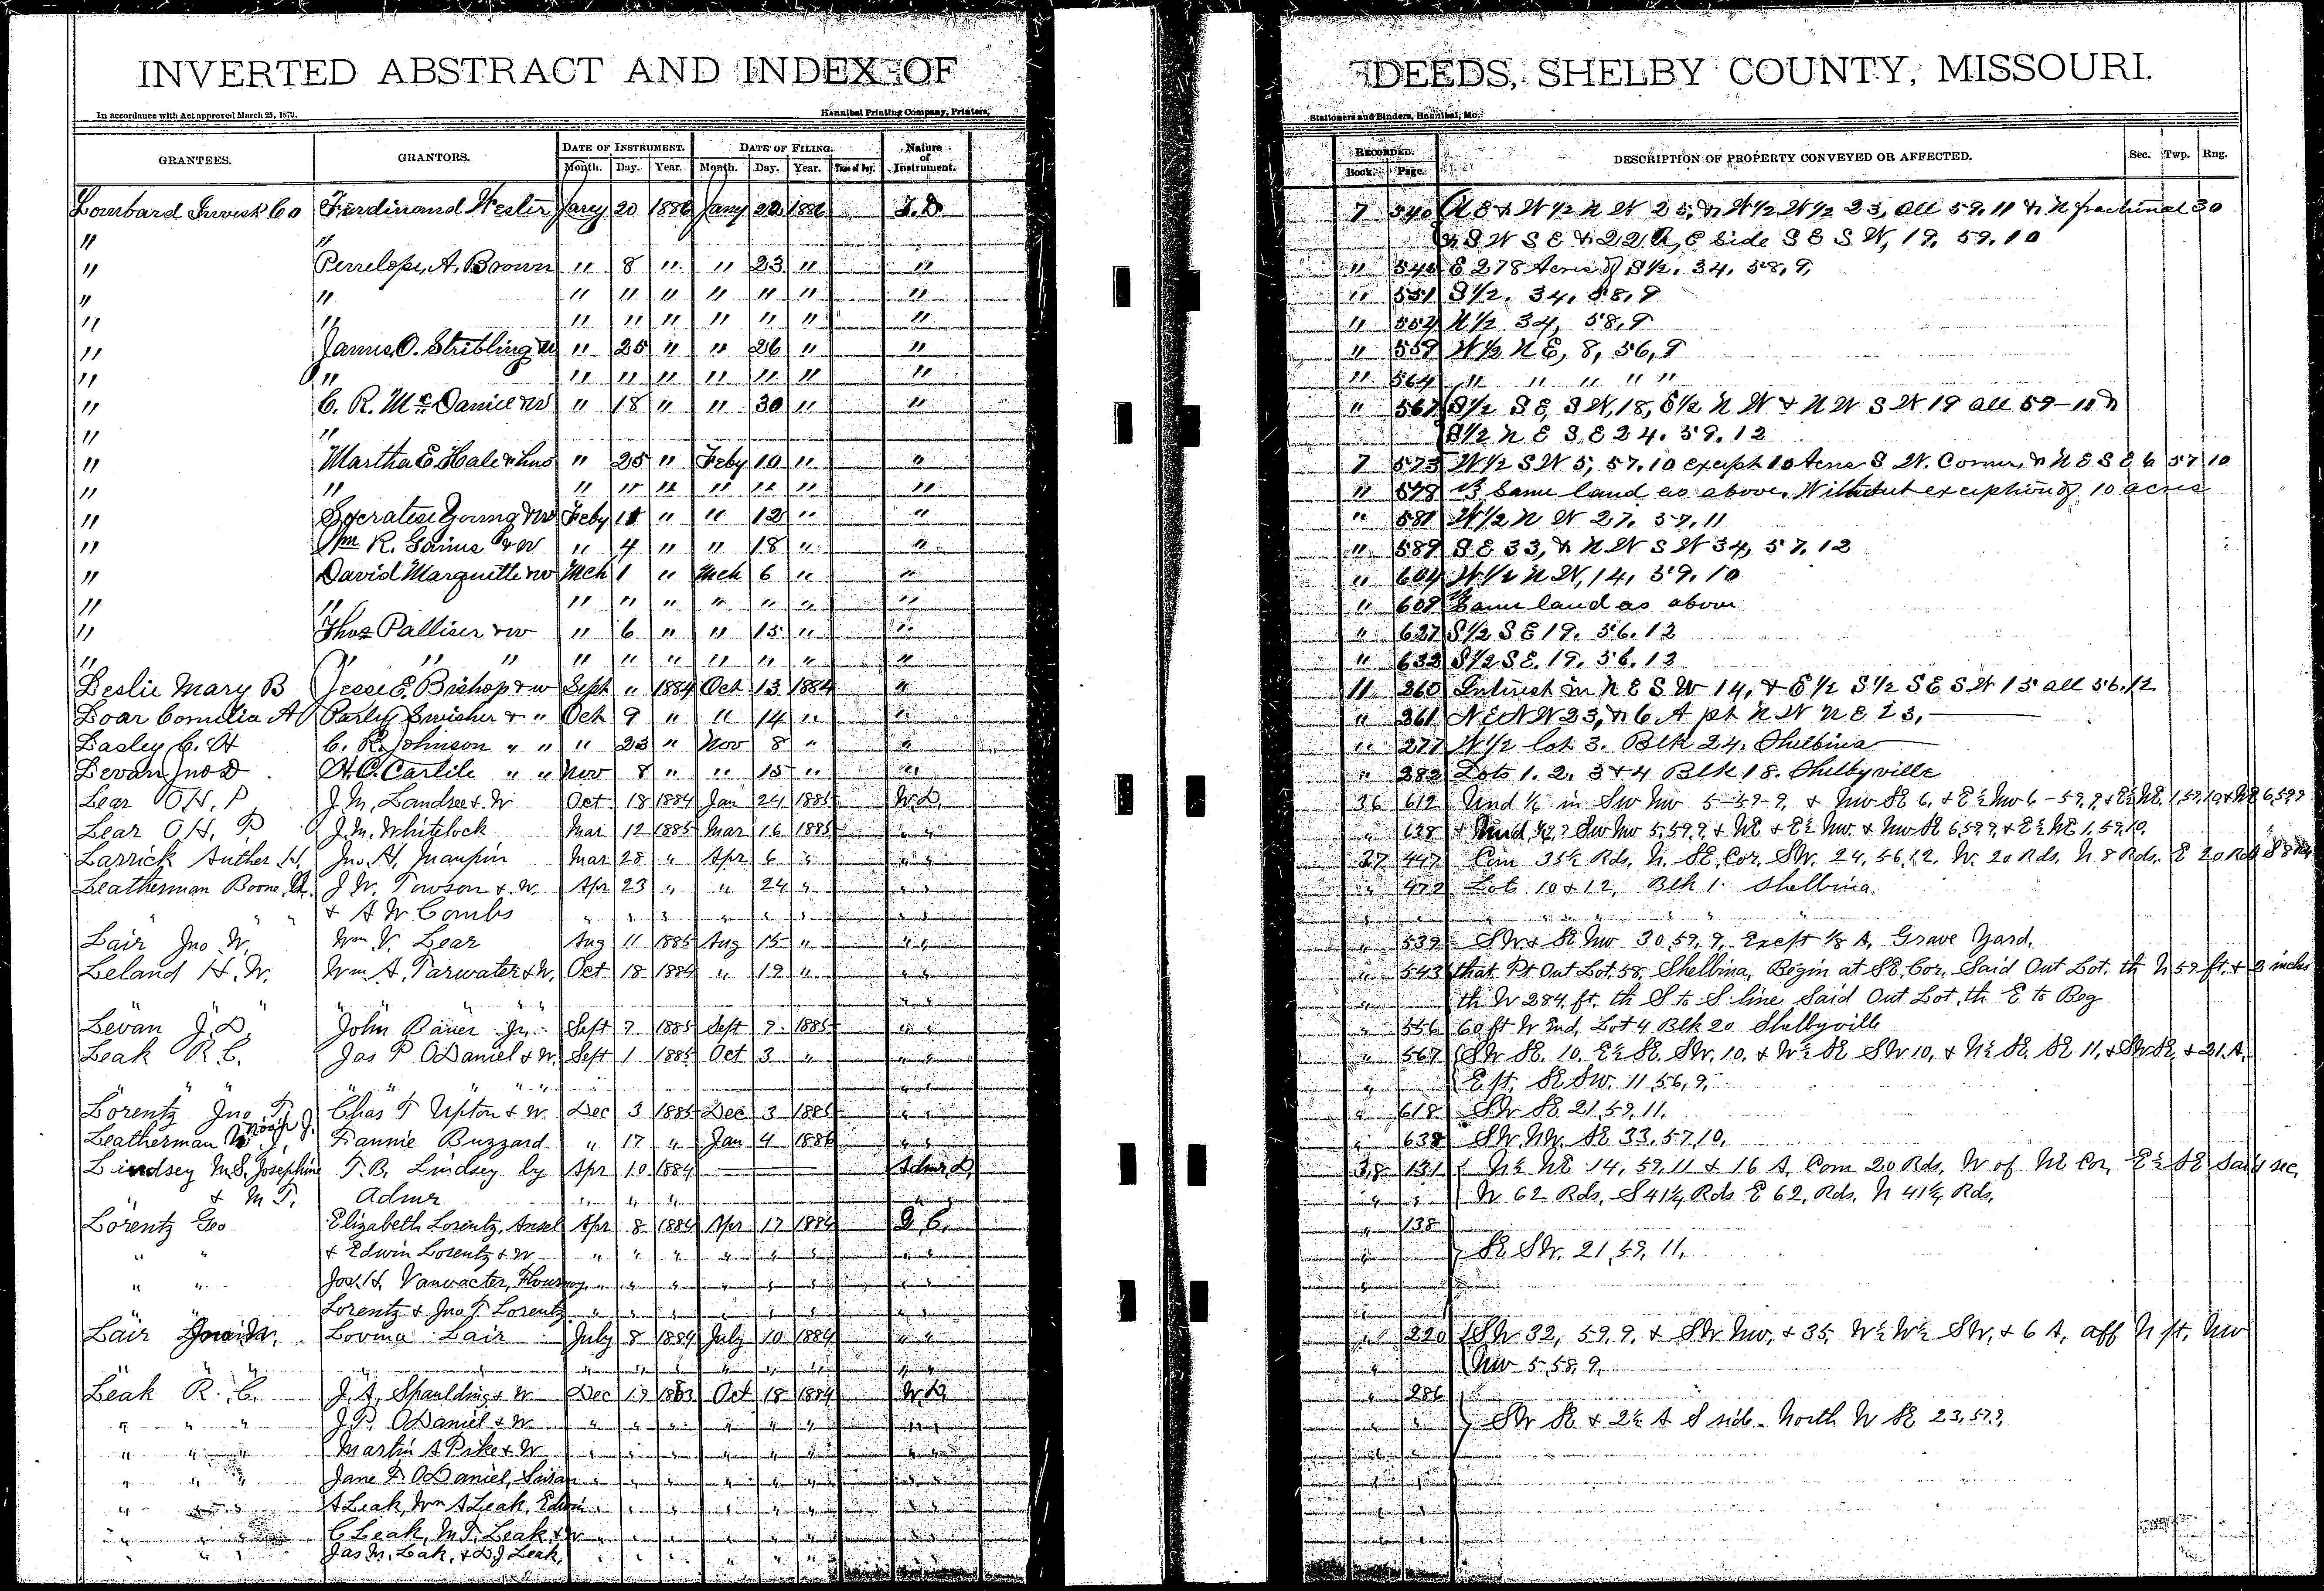 INVERTED ABSTRACT AND INDEX OF DEEDS, SHELBY COUNTY, MISSOURI.
In accordance with Act approved March 25, 1879. Hannibal Printing Company, Printers, Stationers and Binders, Hannibal, Mo.
GRANTEES. GRANTORS. DATE OF INSTRUMENT. DATE OF FILING. Nature of Instrument. RECORDED. DESCRIPTION OF PROPERTY CONVEYED OR AFFECTED. Sec. Twp. Rng.
Month. Day. Year. Month. Day. Year. Time of Day. Book. Page.
Lombard Invest Co Ferdinand Hester Jany 20 1886 Jany 22 1886 T. D. 7 540 N E & W 1/2 N W 25, & W 1/2 W 1/2 23, all 59.11 & N fractional 30
" " & S W S E & 22 A, E Side S E S W, 19. 59.10
" Penelope A. Brown " 8 " " 23 " " " 545 E 278 Acres of S 1/2. 34. 58, 9,
" " " " " " " " " " 551 S 1/2. 34, 58, 9
" " " " " " " " " " 554 N 1/2 34, 58, 9
" James O. Stribling W " 25 " " 26 " " " 559 W 1/2 N E, 8, 56, 9
" " " " " " " " " " 564 " " " " "
" C. R. McDaniel & W " 18 " " 30 " " " 567 S 1/2 S E S W, 18, E 1/2 N W & N W S W 19 all 59-11 &
" " S 1/2 N E S E 24. 59. 12
" Martha E Hale & hus " 25 " Feby 10 " " 7 573 W 1/2 S W 5, 57.10 except 10 Acres S W. Corner, & N E S E 6 57 10
" " " " " " " " " " 578 Same land as above, Without exception of 10 acres
" Socrates Young & W Feby 11 " " 12 " " " 581 W 1/2 N W 27. 57. 11
" Wm R. Gaines & W " 4 " " 18 " " " 589 S E 33, & N W S W 34, 57. 12
" David Marquette & W Mch 1 " Mch 6 " " " 604 W 1/2 N W, 14, 59. 10
" " " " " " " " " " 609 Same land as above
" Thos Palliser & W " 6 " " 15 " " " 627 S 1/2 S E 19. 56. 12
" " " " " " " " " " " " 632 S 1/2 S E. 19. 56. 12
Leslie Mary B Jesse E. Bishop & W Sept " 1884 Oct 13 1884 " 11 260 Interest in N E S W 14, & E 1/2 S 1/2 S E S W 15 all 56.12
Loar Cornelia A Parley Swisher & " Oct 9 " " 14 " " " 261 N E N W 23, & 6 A pt N W N E 23,
Lasley C. H C. R. Johnson " " " 23 " Nov 8 " " " 277 W 1/2 lot 3. Blk 24. Shelbina
Levan Jno D H. C. Carlile " " Nov 8 " " 15 " " " 282 Lots 1. 2. 3 & 4 Blk 18. Shelbyville
Lear O. H. P J. M. Landree & W Oct 18 1884 Jan 24 1885 W. D. 36 612 Und 1/6 in Sw Nw 5-59-9, & Nw SE 6, & E 1/2 Nw 6-59.9 & E 1/2 NE 1, 59, 10 & NE 6, 59 9
Lear O. H. P J. M. Whitelock Mar 12 1885 Mar 16 1885 " " " 638 Sw Nw 5, 59, 9, & NE & E 1/2 Nw & Nw SE 6, 59 9, & E 1/2 NE 1, 59, 10,
Larrick Auther H, Jno. H, Maupin Mar 28 " Apr 6 " " " 37 447 Com 35 1/2 Rds. N. SE, Cor, SW. 24, 56, 12. W. 20 Rds. N 8 Rds. E 20 Rds S 8 Rds
Leatherman Boone J. W. Towson & W. Apr 23 " " 24 " " " " 472 Lots 10 & 12, Blk 1. Shelbina
" " + A W Combs " " " " " " " " " " " "
Lair Jno W. Wm V. Lear Aug 11 1885 Aug 15 " " " " 539 SW & SE Nw 30, 59, 9, Except 1/8 A, Grave Yard.
Leland H. W. Wm A. Tarwater & W. Oct 18 1884 " 19 " " " " 543 that Pt Out Lot 58, Shelbina, Begin at SE, Cor, Said Out Lot, th N 59 ft. & 3 inches
" " " " " " th W 284, ft. th S to S line Said Out Lot, th E to Beg
Levan J. D. John Bauer Jr Sept 7 1885 Sept 9 1885 " " " 556 60 ft W End, Lot 4 Blk 20 Shelbyville
Leak R C. Jas P ODaniel & W. Sept 1 1885 Oct 3 " " " " 567 SW SE. 10, E 1/2 SE SW. 10, & W 1/2 SE SW 10, & N 1/2 SE. SE 11, & SW SE, & 21, A,
" " " " " " E pt. SE SW. 11, 56, 9,
Lorentz Jno T. Chas T Upton & W. Dec 3 1885 Dec 3 1885 " " " 618 SW SE 21, 59, 11,
Leatherman Noah J. Fannie Buzzard " 17 " Jan 4 1886 " " " 638 SW. NW. SE 33, 57, 10,
Lindsey M. S. Josephine T. B, Lindsey by Apr 10 1884 Admr D. 38 131 N 1/2 NE 14, 59, 11 & 16 A, Com 20 Rds, W of NE Cor, E 1/2 SE Said sec,
" & M. T. Admr " " " " " W 62 Rds, S 41 1/4 Rds E 62, Rds, N 41 1/4 Rds,
Lorentz Geo Elizabeth Lorentz, Ansel Apr 8 1884 Apr 17 1884 Q. C. " 138
" " & Edwin Lorentz & W " " " " " " " " " SE SW. 21, 59, 11,
" " Jos. H, Vanvacter, Flournoy " " " " " " " "
Lorentz & Jno T. Lorentz " " " " " " " "
Lair W. Lovina Lair July 8 1884 July 10 1884 " " " 220 SW 32, 59, 9, & SW Nw, & 35, W 1/2 W 1/2 SW, & 6 A, off N pt. Nw
" " " " " " Nw 5-58, 9,
Leak R. C. J. A, Spaulding & W Dec 19 1883 Oct 18 1884 W. D. " 286
" " " J. P. ODaniel & W " " " " " " " " " SW SE & 2 1/2 A S side North W SE 23, 57, 9,
" " " Martin A Pike & W " " " " " " " "
" " " Jane F. ODaniel, Susan " " " " " " "
" " " A Leak, Wm A Leak, Edwin " " " " " "
" " " C Leak, M. T. Leak & W " " " " " "
" " " Jas M. Leak, & D J Leak, " " " " " "